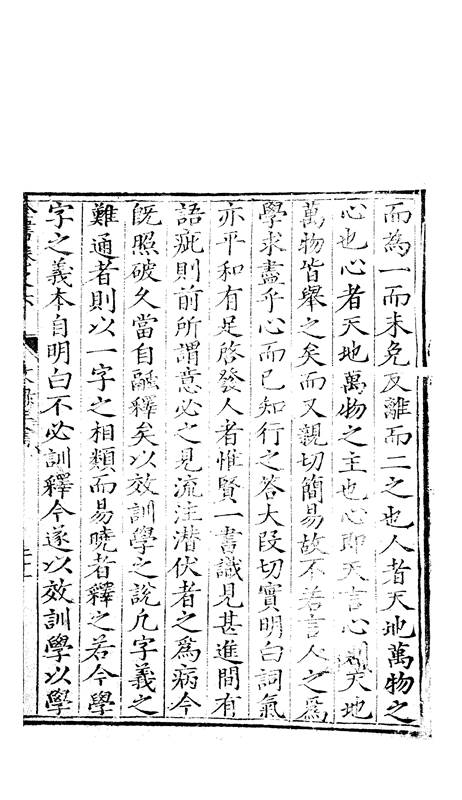 而為一而未免反離而二之也人者天地萬物之
心也心者天地萬物之主也心即天言心則天地
萬物皆舉之矣而又親切簡易故不若言人之為
學求盡乎心而已知行之答大段切實明白詞氣
亦平和有足啓發人者惟賢一書識見甚進間有
語疵則前所謂意必之見流注潛伏者之為病今
既照破久當自融釋矣以效訓學之說凡字義之
難通者則以一字之相類而易曉者釋之若今學
字之義本自明白不必訓釋今遂以效訓學以學